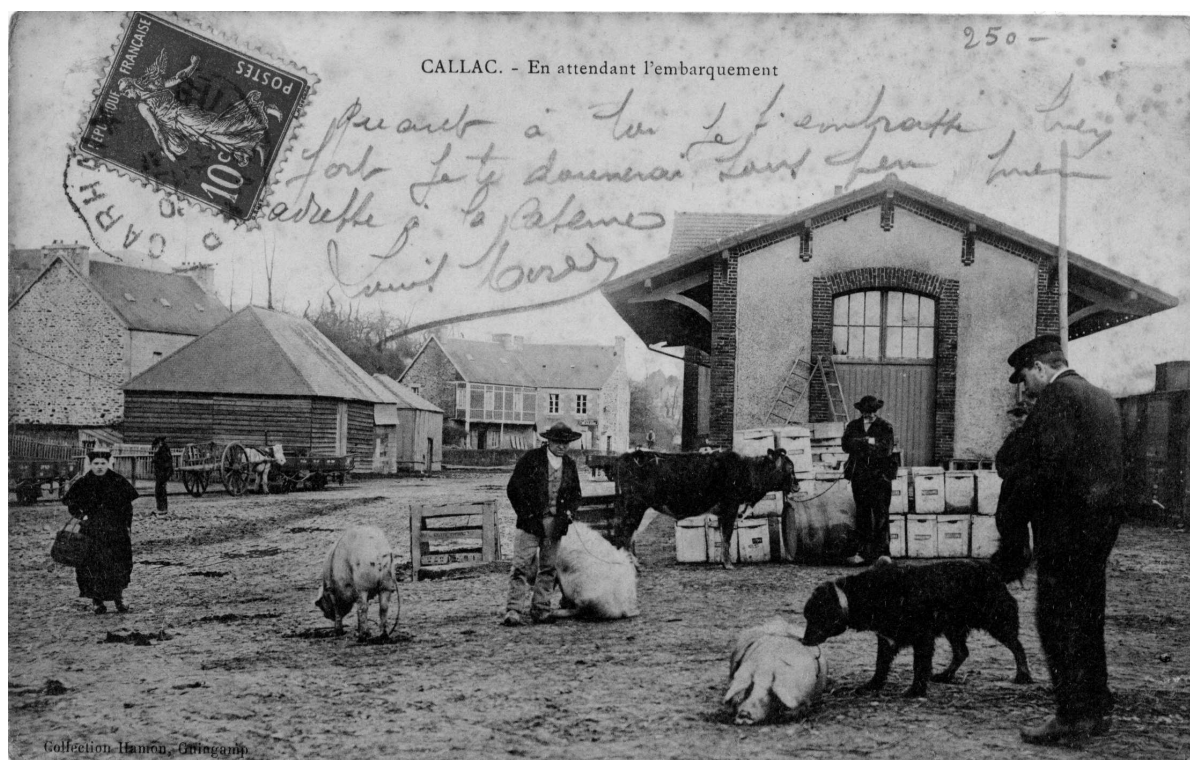 250 -
CALLAC. - En attendant l'embarquement
RÉPUBLIQUE FRANÇAISE
POSTES
10c
CARHA
Quant à toi je t'embrasse bien
fort je te donnerai sous peu mon
adresse à la caserne
Louis
Collection Hamon, Guingamp